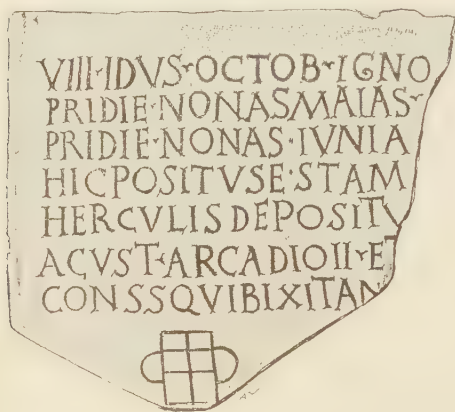 VIII·IDVS·OCTOB·IGNO
PRIDIE·NONASMAIAS·
PRIDIE·NONAS·IVNIA
HICPOSITVSE·STAM
HERCVLISDEPOSITV
ACVST·ARCADIOII·ET
CONSSQVIBIXITAN